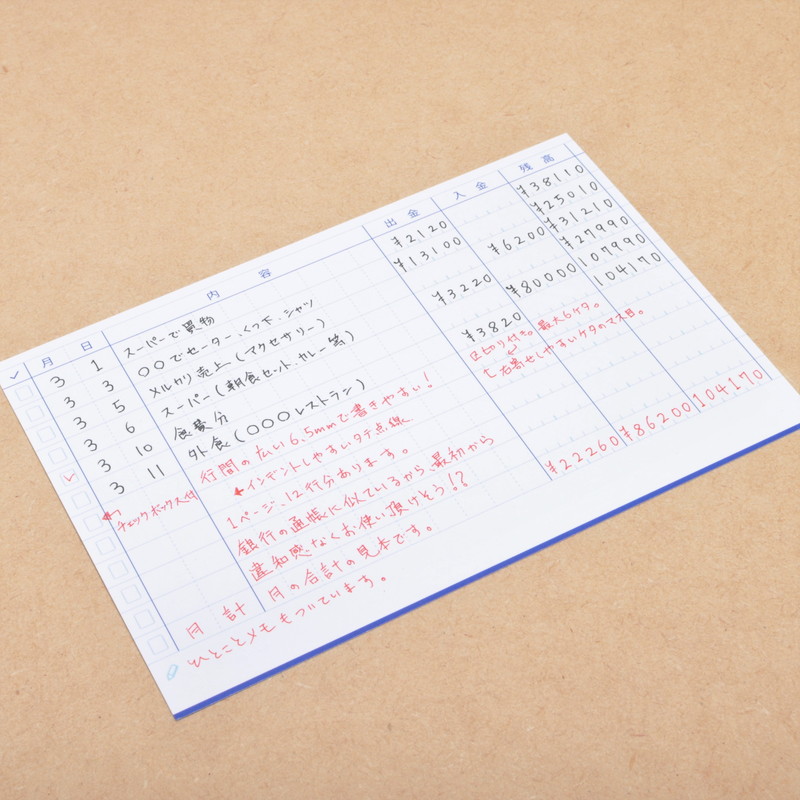 ✓ 月 日 内容 出金 入金 残高
3 1 スーパーで買物 ¥2120 ¥38110
3 3 〇〇でセーター、くつ下、シャツ ¥13100 ¥25010
3 5 メルカリ売上(アクセサリー) ¥6200 ¥31210
3 6 スーパー(朝食セット、カレー等) ¥3220 ¥27990
3 10 食費分 ¥80000 107990
3 11 外食(〇〇〇レストラン) ¥3820 104170
✓ 行間の広い6.5mmで書きやすい! 区切り付き。最大6ケタ。
←インデントしやすいタテ点線 右寄せしやすいケタのマス目。
チェックボックス付
1ページ、12行分あります。
銀行の通帳に似ているから、最初から
違和感なくお使い頂けそう!?
月計 月の合計の見本です。 ¥22260 ¥86200 104170
ひとことメモもついています。